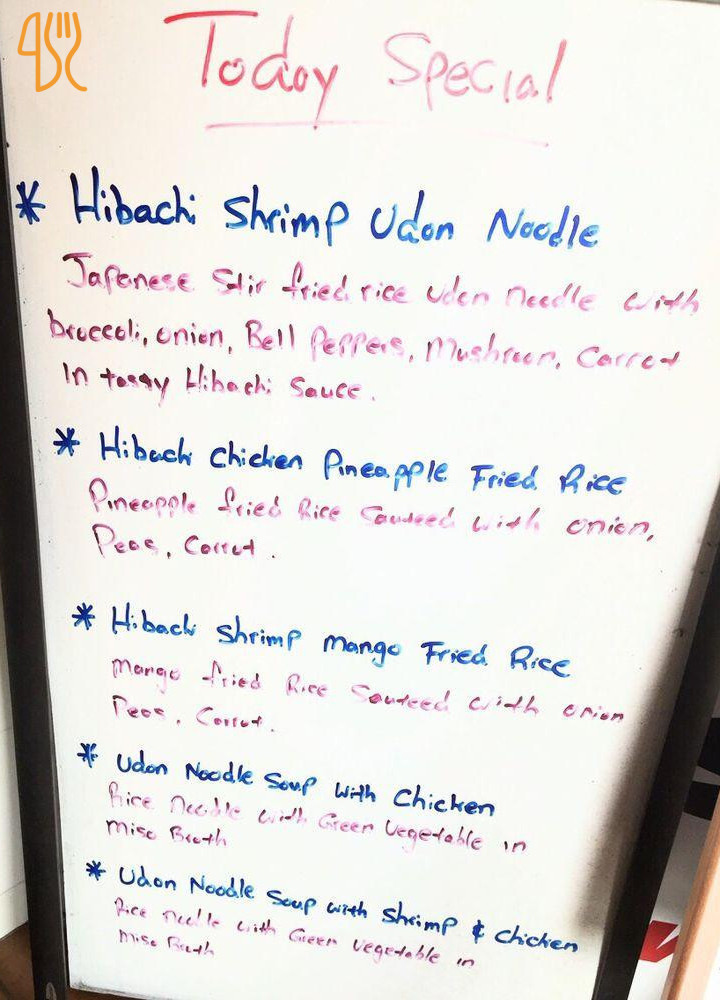 Today Special
* Hibachi Shrimp Udon Noodle
Japanese Stir fried rice Udon Noodle with
broccoli, onion, Bell Peppers, Mushroon, Carrot
In tasty Hibachi Sauce.
* Hibachi Chicken Pineapple Fried Rice
Pineapple fried Rice Sauteed with onion,
Peas, Carrot.
* Hibachi Shrimp mango Fried Rice
mango fried Rice Sauteed with onion
Peas, Carrot.
* Udon Noodle Soup with Chicken
Rice Noodle with Green Vegetable in
Miso Broth
* Udon Noodle Soup with Shrimp & Chicken
Rice Noodle with Green Vegetable in
Miso Broth